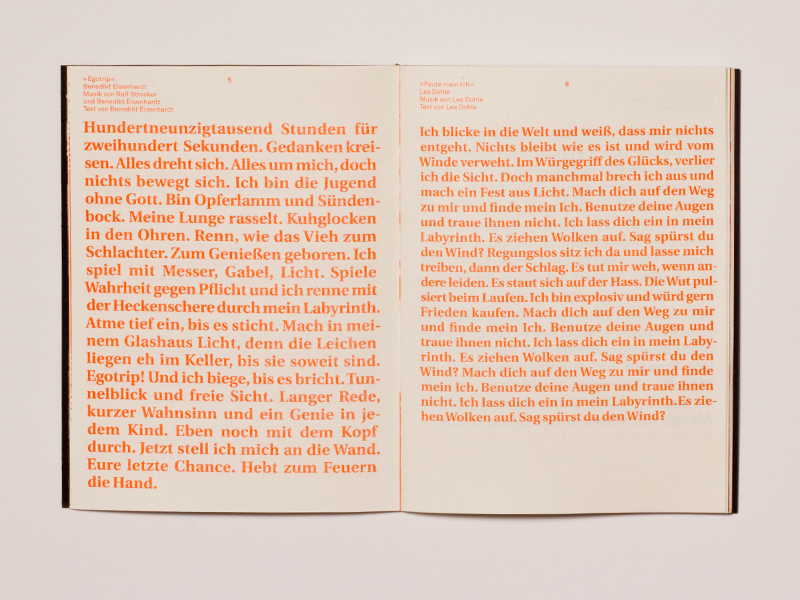 »Egotrip«
Benedikt Eisenhardt
Musik von Ralf Strecker
und Benedikt Eisenhardt
Text von Benedikt Eisenhardt
5
Hundertneunzigtausend Stunden für
zweihundert Sekunden. Gedanken krei-
sen. Alles dreht sich. Alles um mich, doch
nichts bewegt sich. Ich bin die Jugend
ohne Gott. Bin Opferlamm und Sünden-
bock. Meine Lunge rasselt. Kuhglocken
in den Ohren. Renn, wie das Vieh zum
Schlachter. Zum Genießen geboren. Ich
spiel mit Messer, Gabel, Licht. Spiele
Wahrheit gegen Pflicht und ich renne mit
der Heckenschere durch mein Labyrinth.
Atme tief ein, bis es sticht. Mach in mei-
nem Glashaus Licht, denn die Leichen
liegen eh im Keller, bis sie soweit sind.
Egotrip! Und ich biege, bis es bricht. Tun-
nelblick und freie Sicht. Langer Rede,
kurzer Wahnsinn und ein Genie in je-
dem Kind. Eben noch mit dem Kopf
durch. Jetzt stell ich mich an die Wand.
Eure letzte Chance. Hebt zum Feuern
die Hand.
»Finde mein Ich«
Lea Dohle
Musik von Lea Dohle
Text von Lea Dohle
6
Ich blicke in die Welt und weiß, dass mir nichts
entgeht. Nichts bleibt wie es ist und wird vom
Winde verweht. Im Würgegriff des Glücks, verlier
ich die Sicht. Doch manchmal brech ich aus und
mach ein Fest aus Licht. Mach dich auf den Weg
zu mir und finde mein Ich. Benutze deine Augen
und traue ihnen nicht. Ich lass dich ein in mein
Labyrinth. Es ziehen Wolken auf. Sag spürst du
den Wind? Regungslos sitz ich da und lasse mich
treiben, dann der Schlag. Es tut mir weh, wenn an-
dere leiden. Es staut sich auf der Hass. Die Wut pul-
siert beim Laufen. Ich bin explosiv und würd gern
Frieden kaufen. Mach dich auf den Weg zu mir
und finde mein Ich. Benutze deine Augen und
traue ihnen nicht. Ich lass dich ein in mein Laby-
rinth. Es ziehen Wolken auf. Sag spürst du den
Wind? Mach dich auf den Weg zu mir und finde
mein Ich. Benutze deine Augen und traue ihnen
nicht. Ich lass dich ein in mein Labyrinth.Es zie-
hen Wolken auf. Sag spürst du den Wind?